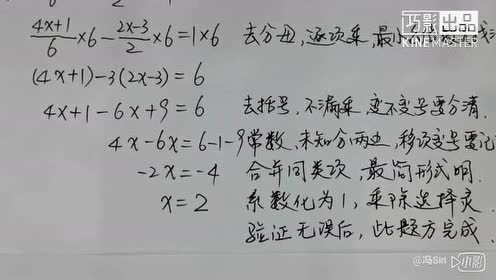 巧影出品
KINEMASTER
(4x+1)/6 ×6 - (2x-3)/2 ×6 = 1×6 去分母,逐项乘,最小
(4x+1)-3(2x-3)=6
4x+1-6x+9=6 去括号,不漏乘,变不变号要分清.
4x-6x=6-1-9 常数、未知分两边,移项变号要记
-2x=-4 合并同类项,最简形式明.
x=2 系数化为1,乘除选择灵.
验证无误后,此题方完成.
@冯Siri 小影